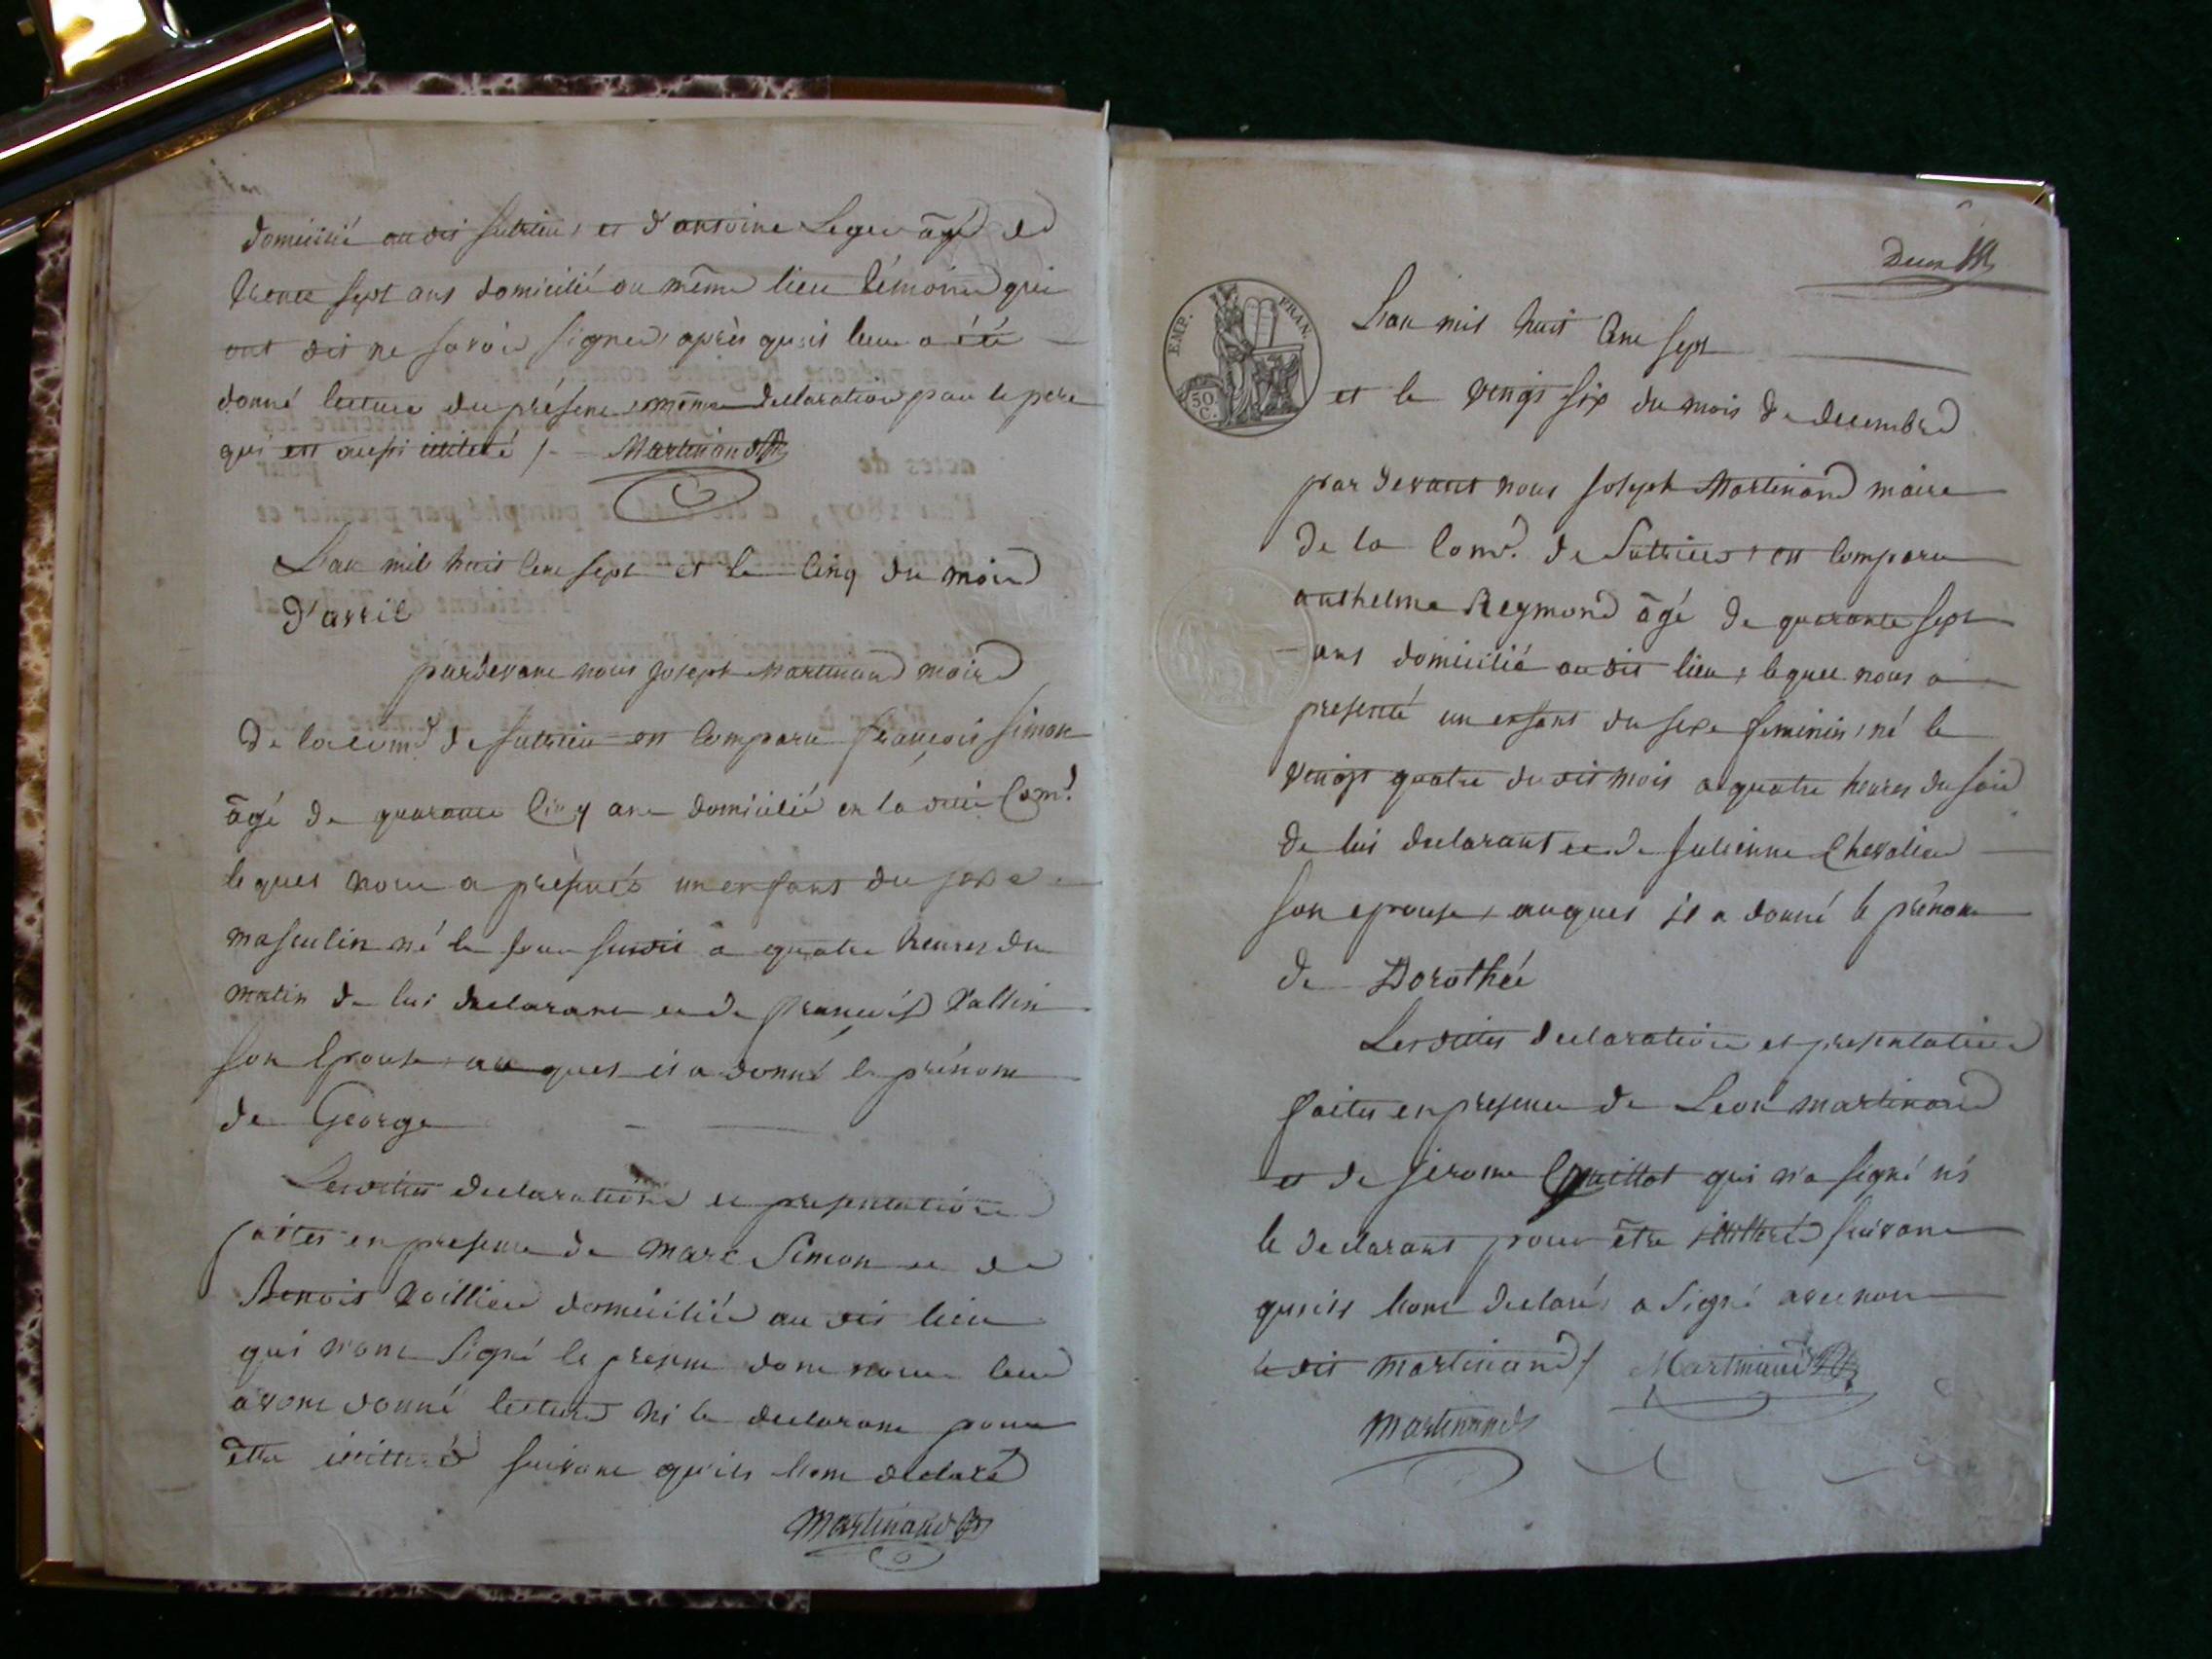 domicilié au dit Sutrieu, et d'antoine Leger âgé de
trente sept ans domicilié au même lieu témoins qui
ont dit ne savoir signer, après qu'il leur a été
donné lecture du présent même declaration par le pere
qui est aussi illiteré /. Martinand
L'an mil huit cent sept et le cinq du mois
d'avril
pardevant nous Joseph Martinand maire
de la com.e de Sutrieu est comparu françois Simon
âgé de quarante cinq ans domicilié en la dite Com.e
lequel nous a présenté un enfant du sexe
masculin né le jour susdit à quatre heures du
matin de lui declarant et de françoise Vallin
son epouse auquel il a donné le prénom
de George
Lesdites declarations et presentations
faites en presence de Marc Simon et de
Benoit domiciliés au dit lieu
qui n'ont signé le present dont nous leur
avons donné lecture ni le declarant pour
être illiterés suivant qu'ils l'ont declaré
Martinand
Deux
EMP. FRAN.
50 C.
L'an mil huit cent sept
et le vingt six du mois de decembre
par devant nous Joseph Martinand maire
de la Com.e de Sutrieu, est comparu
anthelme Reymond âgé de quarante sept
ans domicilié au dit lieu, lequel nous a
presenté un enfant du sexe feminin, né le
vingt quatre du dit mois a quatre heures du soir
de lui declarant et de Julienne Chevalier
son epouse, auquel il a donné le prénom
de Dorothée
Lesdites declaration et presentation
faites en presence de Leon martinand
et de jerome qui n'a signé ni
le declarant pour être illiterés suivant
qu'ils l'ont declaré, a signé avec nous
le dit martinand / Martinand
Martinand